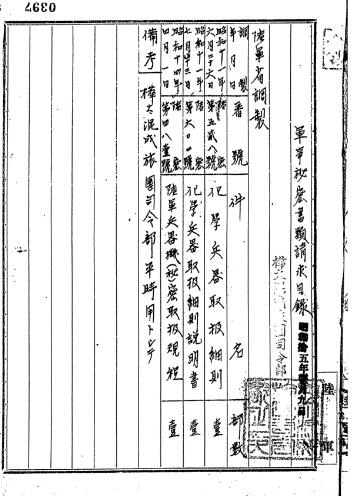 0397
軍事秘密書類請求目録
昭和拾五年
司令部
陸軍省調製
調製年月日
番號
件名
部数
昭和十一年六月二十六日
陸密第五貳八號
化学兵器取扱細則
壹
昭和十一年七月二十三日
陸密第六〇二號
化学兵器取扱細則説明書
壹
昭和十四年四月一日
陸密第四八壹號
陸軍兵器機(秘)密取扱規程
壹
備考
樺太混成旅團司令部平時用トシテ
陸軍